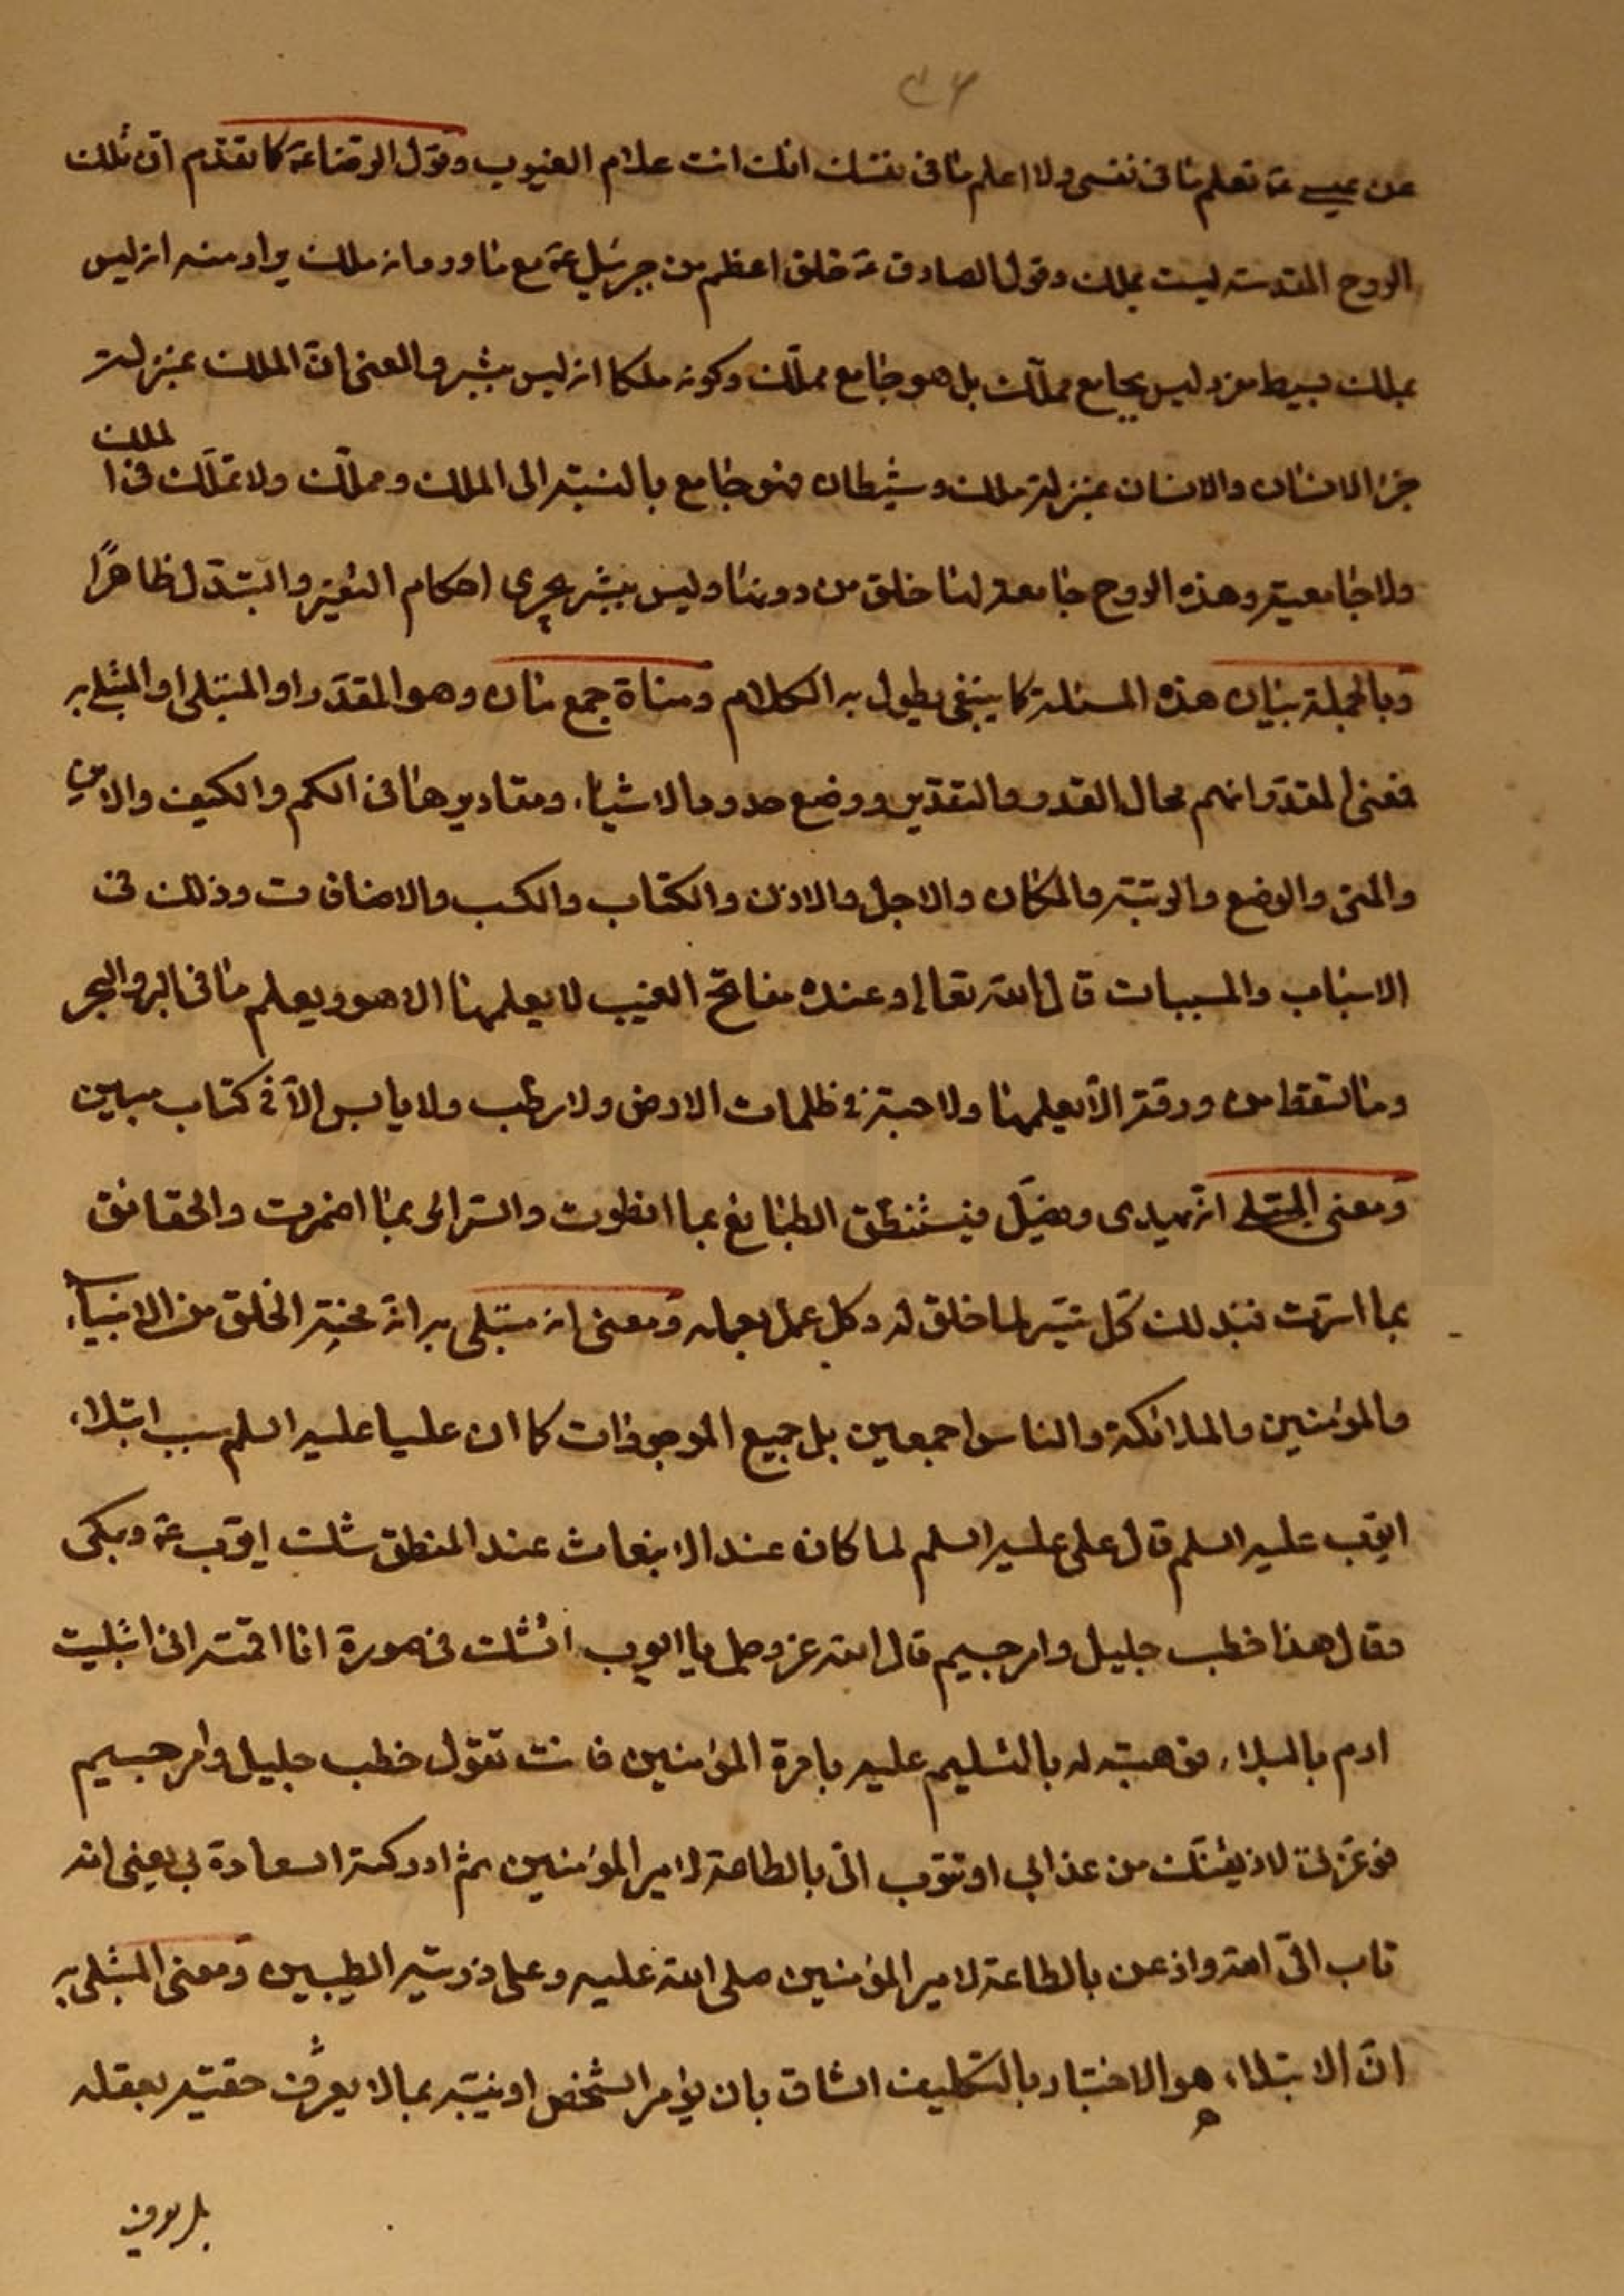 ٤٦
عن عيسى ع تعلم ما فى نفسى ولا اعلم ما فى نفسك انك انت علام الغيوب وقول الرضا ع كما تقدم ان تلك
الروح المقدسة ليست بملك وقول الصادق ع خلق اعظم من جبرئيل ع مع ما ورد انه ملك يراد منه انه ليس
بملك بسيط ليس بجامع مملّك بل هو جامع مملّك وكونه ملكا انه ليس ببشر والمعنى انّ الملك بمنزلة
جزء الانسان والانسان بمنزلة ملك وشيطان فهو جامع بالنسبة الى الملك ومملّك ولا تملّك فى الملك
ولا جامعية وهذه الروح جامعة لنا خلق من دوننا وليس ببشر يجرى احكام التغير والتبدّل ظاهرًا
وبالجملة بيان هذه المسئلة كما ينبغى يطول به الكلام ومناة جمع مان وهو المقدّر او المبتلى او المبتلى به
فمعنى المقدّر انهم محال القدر والتقدير ووضع حدود الاشياء ومقاديرها فى الكم والكيف والاين
والمتى والوضع والرتبة والمكان والاجل والاذن والكتاب والكسب والاضافات وذلك فى
الاسباب والمسببات قال الله تعالى وعنده مفاتح الغيب لا يعلمها الا هو ويعلم ما فى البر والبحر
وما تسقط من ورقة الّا يعلمها ولا حبة فى ظلمات الارض ولا رطب ولا يابس الّا فى كتاب مبين
ومعنى المبتلى انه يهدى ويضلّ فيستنطق الطبائع بما انطوت والسرائر بما اضمرت والحقائق
بما اسرّت فبذلك كل ميسّر لما خلق له وكل عمل بعمله ومعنى انه مبتلى به انه محنة الخلق من الانبياء
والمؤمنين والملائكة والناس اجمعين بل جميع الموجودات كما ان عليا عليه السلم سبب ابتلاء
ايوب عليه السلم قال على عليه السلم لما كان عند الانبعاث عند المنطق شك ايوب ع وبكى
وقال هذا خطب جليل وامر جسيم قال الله عز وجل يا ايوب اتشك فى صورة انا اقمته انى ابتليت
ادم بالبلاء فوهبته له بالتسليم عليه بامرة المؤمنين فانت تقول خطب جليل وامر جسيم
فوعزتى لاذيقنّك من عذابى او تتوب الىّ بالطاعة لامير المؤمنين ثم ادركته السعادة بى يعنى انه
تاب الى الله واذعن بالطاعة لامير المؤمنين صلى الله عليه وعلى ذريته الطيبين ومعنى المبتلى به
انّ الابتلاء هو الاختبار بالتكليف الشاق بان يؤمر الشخص او ينبّه بما لا يعرف حقيته بعقله